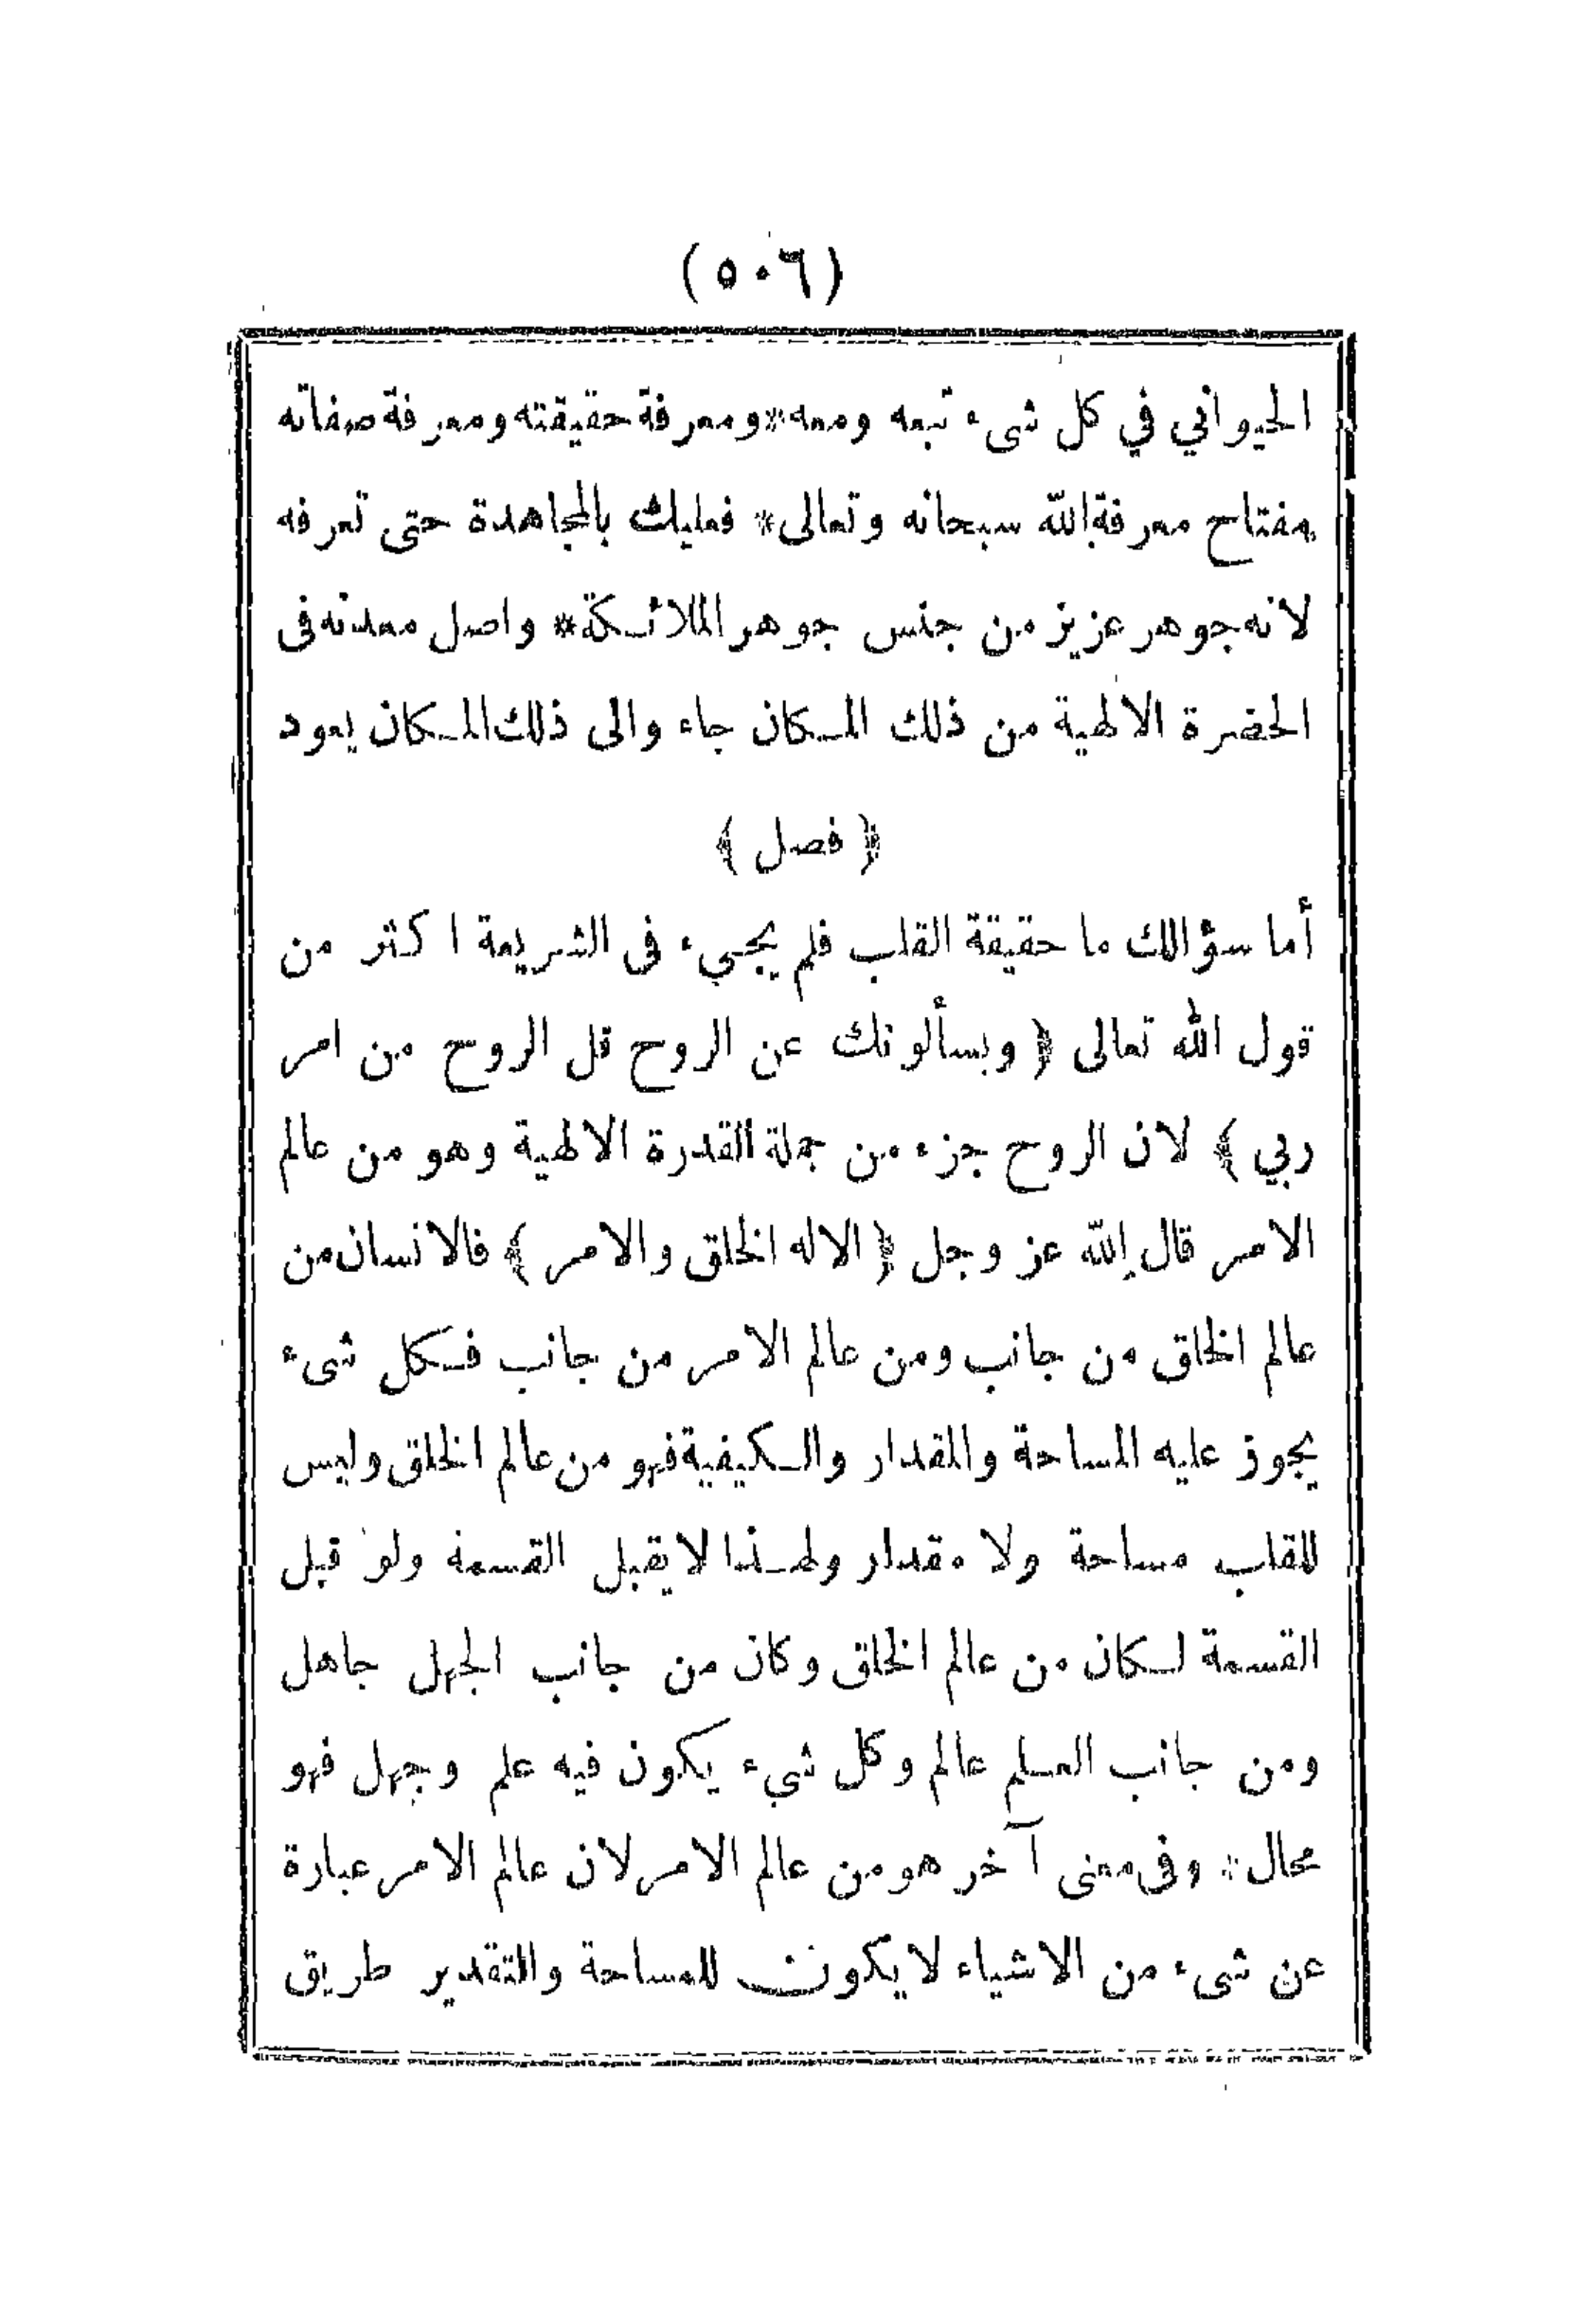 (٥٠٦)
الحيواني في كل شىء تبعه ومعه * ومعرفة حقيقته ومعرفة صفاته
مفتاح معرفة الله سبحانه وتعالى * فعليك بالمجاهدة حتى تعرفه
لانه جوهر عزيز من جنس جوهر الملائكة * واصل معدنه فى
الحضرة الالهية من ذلك المكان جاء والى ذلك المكان يعود
﴿ فصل ﴾
أما سؤالك ما حقيقة القلب فلم يجىء فى الشريعة اكثر من
قول الله تعالى ﴿ ويسألونك عن الروح قل الروح من امر
ربي ﴾ لان الروح جزء من جملة القدرة الالهية وهو من عالم
الامر قال الله عز وجل ﴿ الا له الخلق والامر ﴾ فالانسان من
عالم الخلق من جانب ومن عالم الامر من جانب فكل شىء
يجوز عليه المساحة والمقدار والكيفية فهو من عالم الخلق وليس
للقلب مساحة ولا مقدار ولهذا لا يقبل القسمة ولو قبل
القسمة لكان من عالم الخلق وكان من جانب الجهل جاهل
ومن جانب العلم عالم وكل شيء يكون فيه علم وجهل فهو
محال * وفى معنى آخر هو من عالم الامر لان عالم الامر عبارة
عن شىء من الاشياء لا يكون للمساحة والتقدير طريق